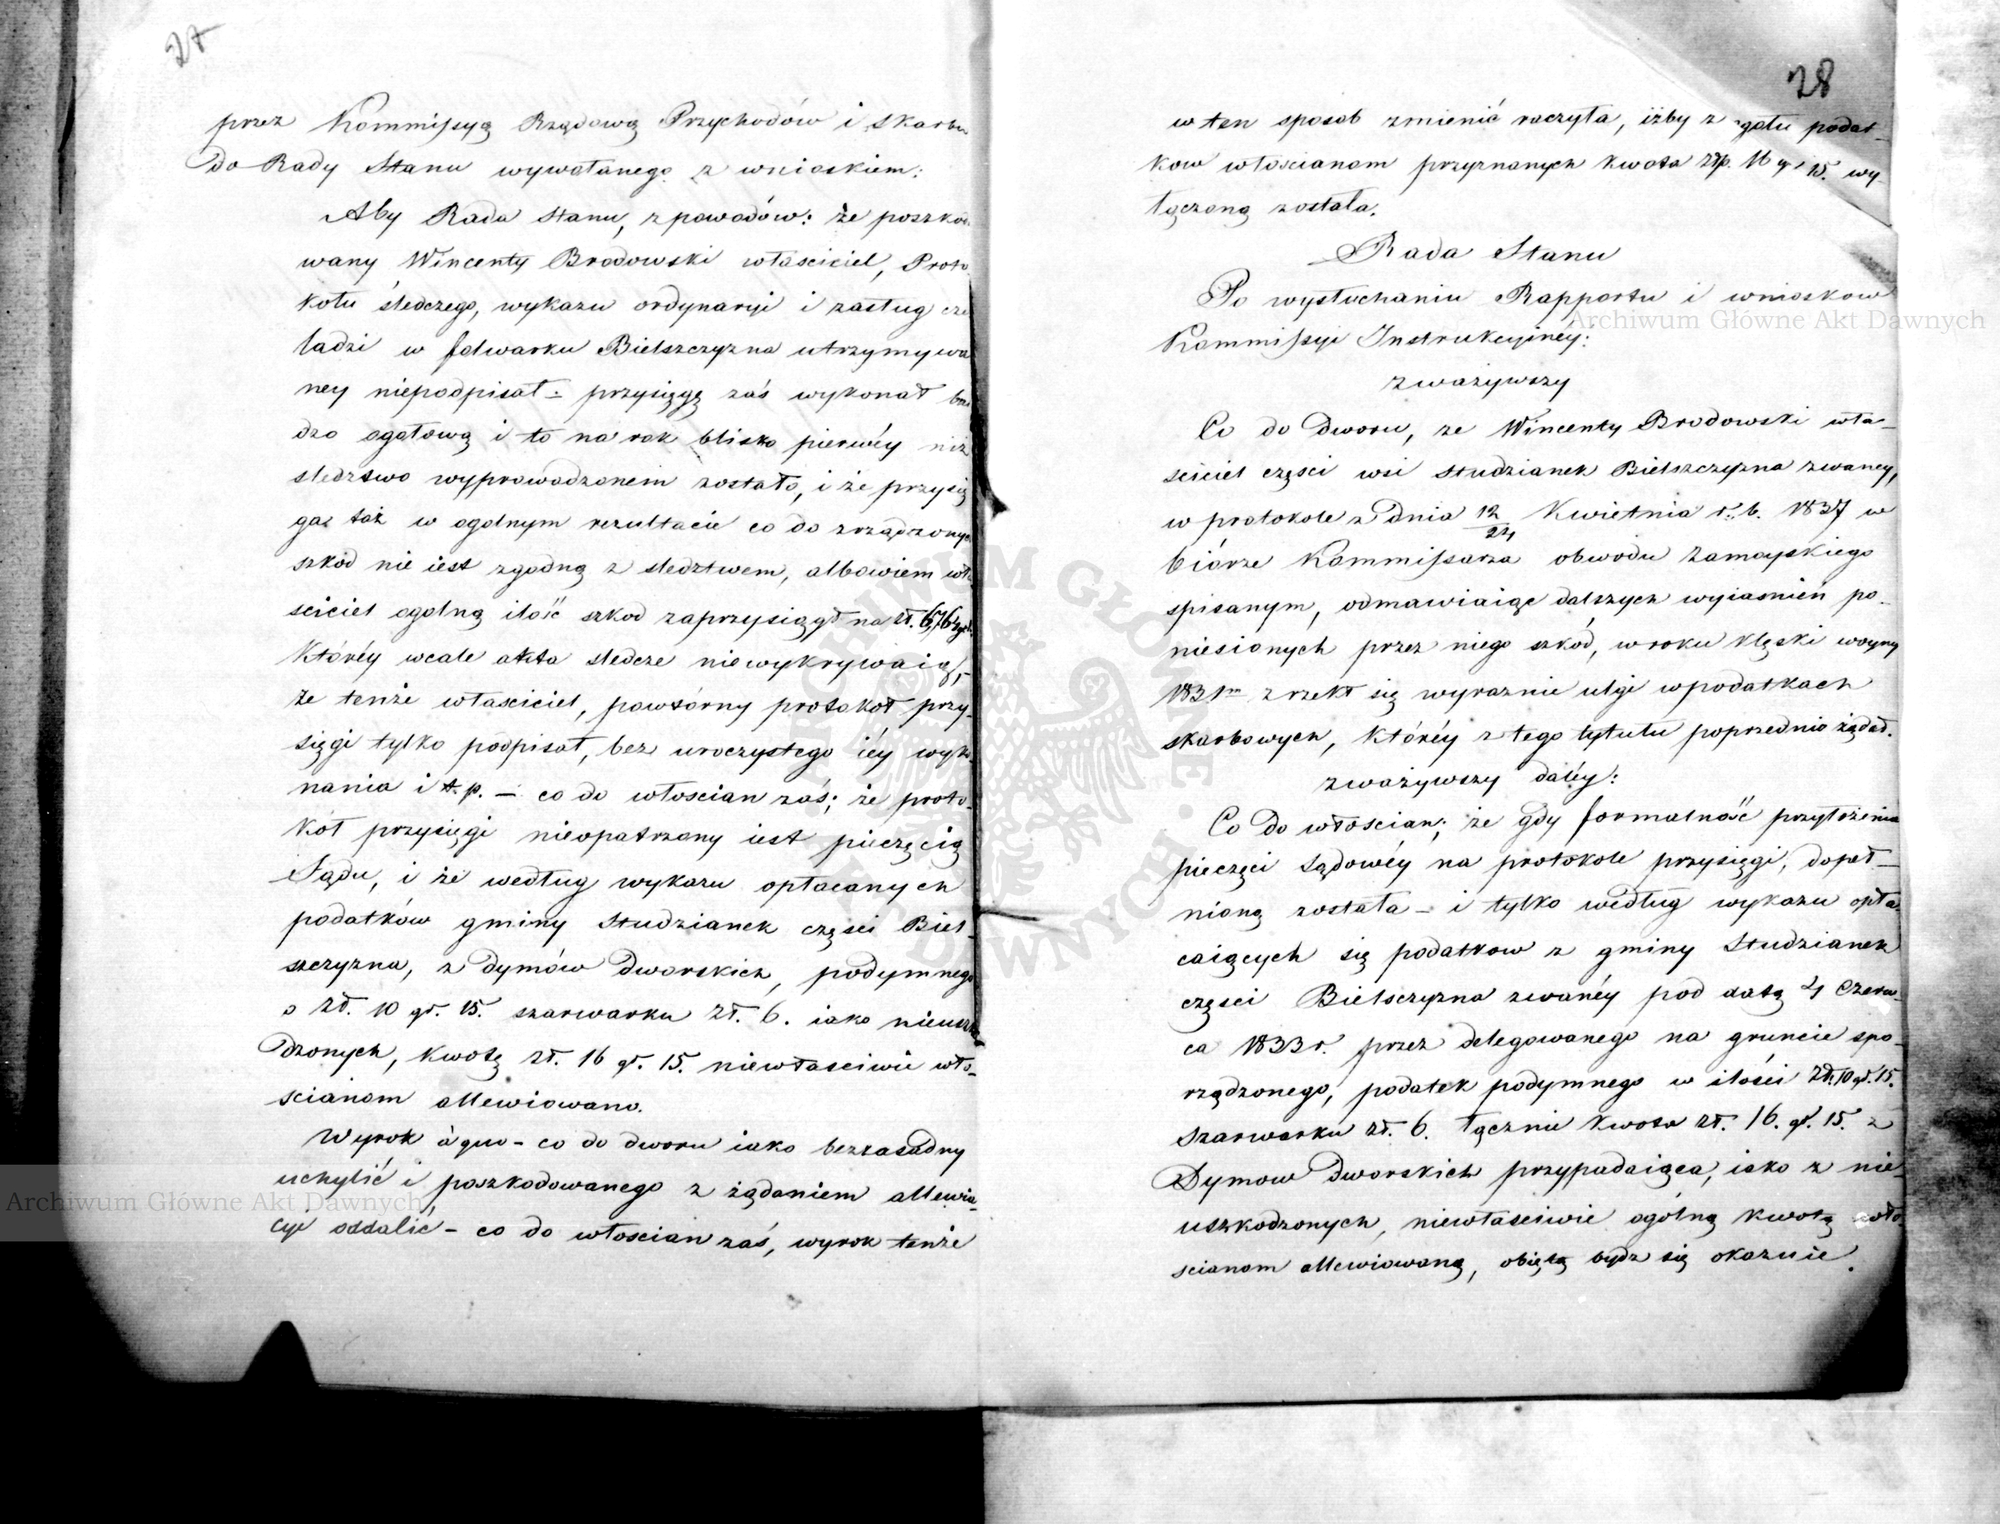 27
przez Kommissyą Rządową Przychodów i Skarbu
do Rady Stanu wywołanego z wnioskiem:
Aby Rada Stanu, z powodów: że poszkodo
wany Wincenty Brodowski właściciel, Proto
kołu śledczego, wykazu ordynaryi i zasług cze
ladzi w folwarku Bielszczyzna utrzymywa
ney niepodpisał – przysięgę zaś wykonał bar
dzo ogołową i to na rok blisko pierwéy niż
sledztwo wyprowadzonem zostało, i że przysię
ga taż w ogolnym rezultacie co do zrządzonych
szkod nie iest zgodną z sledztwem, albowiem wła
sciciel ogolną ilość szkod zaprzysiągł na zł.
Któréy wcale akta sledcze niewykrywaią,
że tenże własciciel, powtórny protokoł przy-
sięgi tylko podpisał, bez uroczystego iéy wyko
nania i t. p. – co do włoscian zaś; że proto-
kół przysięgi nieopatrzony iest pieczęcią
Sądu, i że według wykazu opłacanych
podatków gminy Studzianek częsci Biel-
szczyzna, z dymów dworskich, podymnego
o zł. 10 gr. 15. szarwarku zł. 6. iako nieuszko
dzonych, kwotę zł. 16 gr. 15. niewłasciwie wło-
scianom allewiowano.
Wyrok à quo – co do dworu iako bezzasadny
uchylić i poszkodowanego z żądaniem allewia-
cyi oddalić – co do włoscian zaś, wyrok tenże
28
w ten sposob zmienić raczyła, iżby z ogołu podat-
kow włoscianom przyznanych kwota złp. 16 gr. 15. wy-
łączoną została.
Rada Stanu
Po wysłuchaniu Rapportu i wnioskow
Kommissyi Instrukcyiney:
zważywszy
Co do dworu, ze Wincenty Brodowski wła-
sciciel części wsi Studzianek Bielszczyzna zwaney,
w protokole z dnia 12/24 Kwietnia r. b. 1837 w
biórze Kommissarza obwodu Zamoyskiego
spisanym, odmawiaiąc dalszych wyiasnień po-
niesionych przez niego szkód, w roku klęski woyny
1831m zrzekł się wyraznie ulgi w podatkach
skarbowych, któréy z tego tytułu poprzednio żądał.
zważywszy daléy:
Co do włoscian; że gdy formalność przyłożenia
pieczęci Sądowéy na protokole przysięgi, dopeł-
nioną została – i tylko według wykazu opła-
caiących się podatkow z gminy Studzianek
częsci Bielsczyzna zwanéy pod datą 4 Czerw-
ca 1833 r. przez delegowanego na gruncie spo-
rządzonego, podatek podymnego w ilości zł. 10 gr. 15.
Szarwarku zł. 6. łącznie kwota zł. 16. gr. 15. z
Dymow Dworskich przypadaiąca, iako z nie
uszkodzonych, niewłasciwie ogólną kwotą wło-
scianom allewiowaną, obiętą bydz się okazuie.
Archiwum Główne Akt Dawnych
Archiwum Główne Akt Dawnych
ARCHIWUM GŁÓWNE AKT DAWNYCH